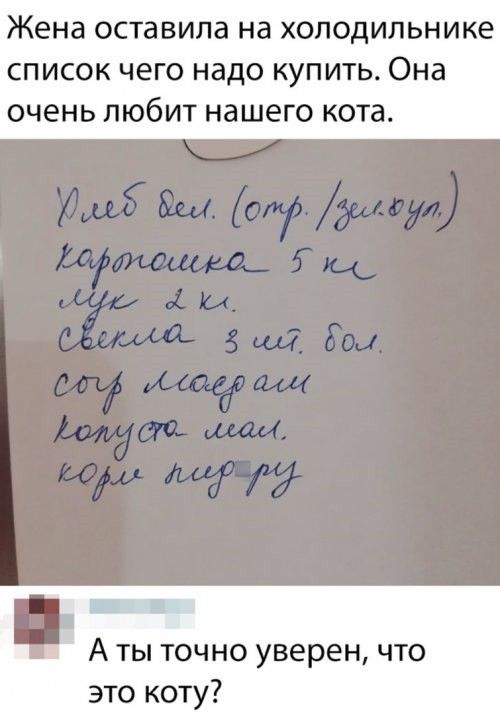 Жена оставила на холодильнике
список чего надо купить. Она
очень любит нашего кота.
Хлеб бел. (отр. /зел.оул.)
картошка 5 кг
лук 2 кг.
свекла 3 шт. бол.
сыр маасдам
капуста мал.
корм
А ты точно уверен, что
это коту?